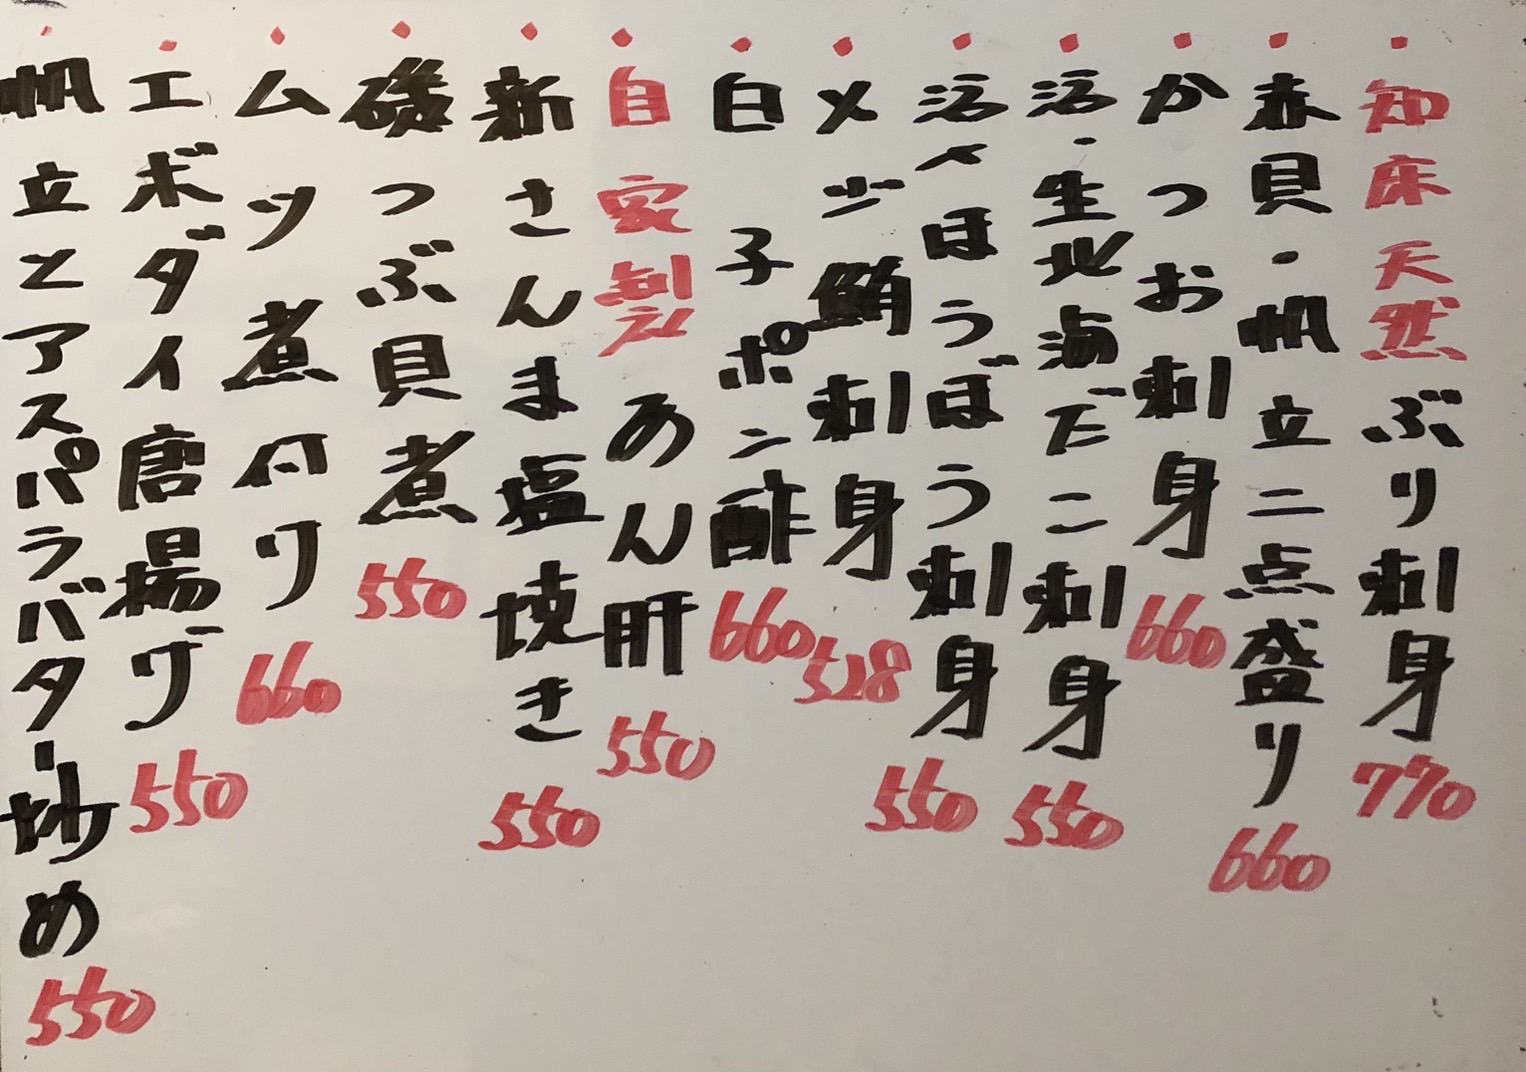 ・知床天然ぶり刺身 770
・赤貝・帆立二点盛り 660
・かつお刺身 660
・活・生北海だこ刺身 550
・活〆ほうぼう刺身 550
・メジ鮪刺身 528
・白子ポン酢 660
・自家製あん肝 550
・新さんま塩焼き 550
・磯つぶ貝煮 550
・ムツ煮付け 660
・エボダイ唐揚げ 550
・帆立とアスパラバター炒め 550